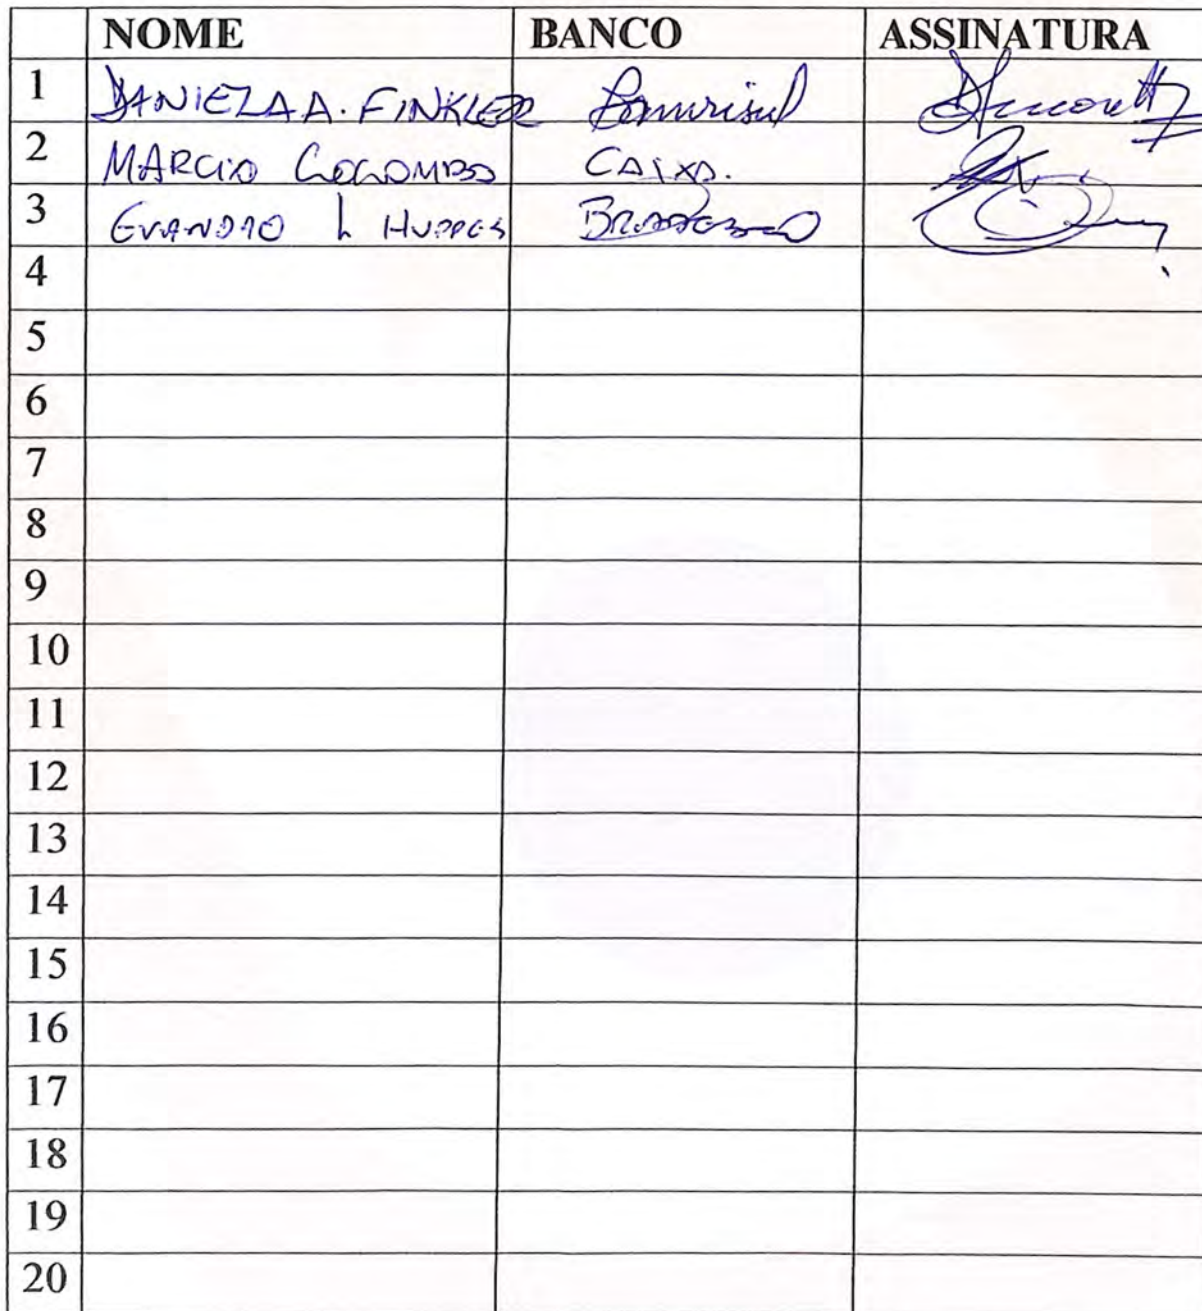 NOME BANCO ASSINATURA
1 DANIELA A. FINKLER Banrisul
2 MARCIO COLOMBO CAIXA.
3 EVANDRO L HUPPES BRADESCO
4
5
6
7
8
9
10
11
12
13
14
15
16
17
18
19
20